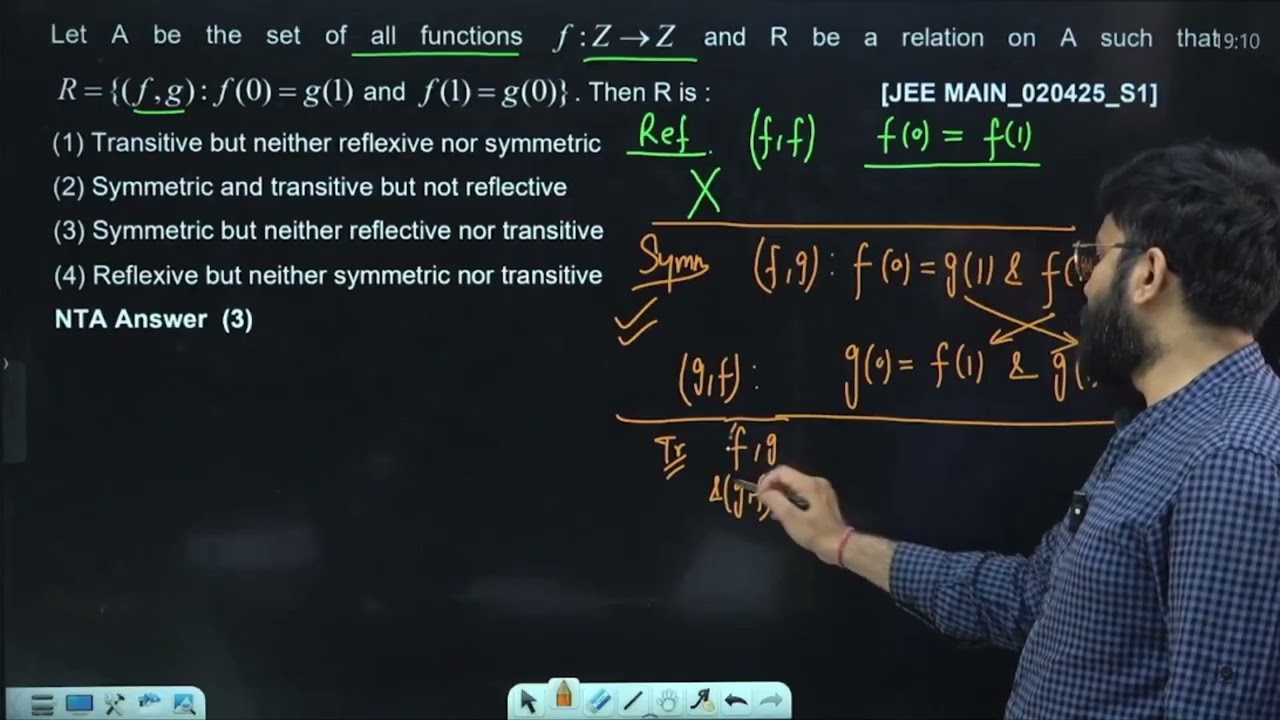 Let A be the set of all functions f : Z → Z and R be a relation on A such that 19:10
R = {(f,g) : f(0) = g(1) and f(1) = g(0)}. Then R is : [JEE MAIN_020425_S1]
(1) Transitive but neither reflexive nor symmetric
(2) Symmetric and transitive but not reflective
(3) Symmetric but neither reflective nor transitive
(4) Reflexive but neither symmetric nor transitive
NTA Answer (3)
Ref. (f,f) f(0) = f(1)
X
Symm (f,g) : f(0) = g(1) & f(
(g,f) : g(0) = f(1) & g(
Tr f,g
&(g